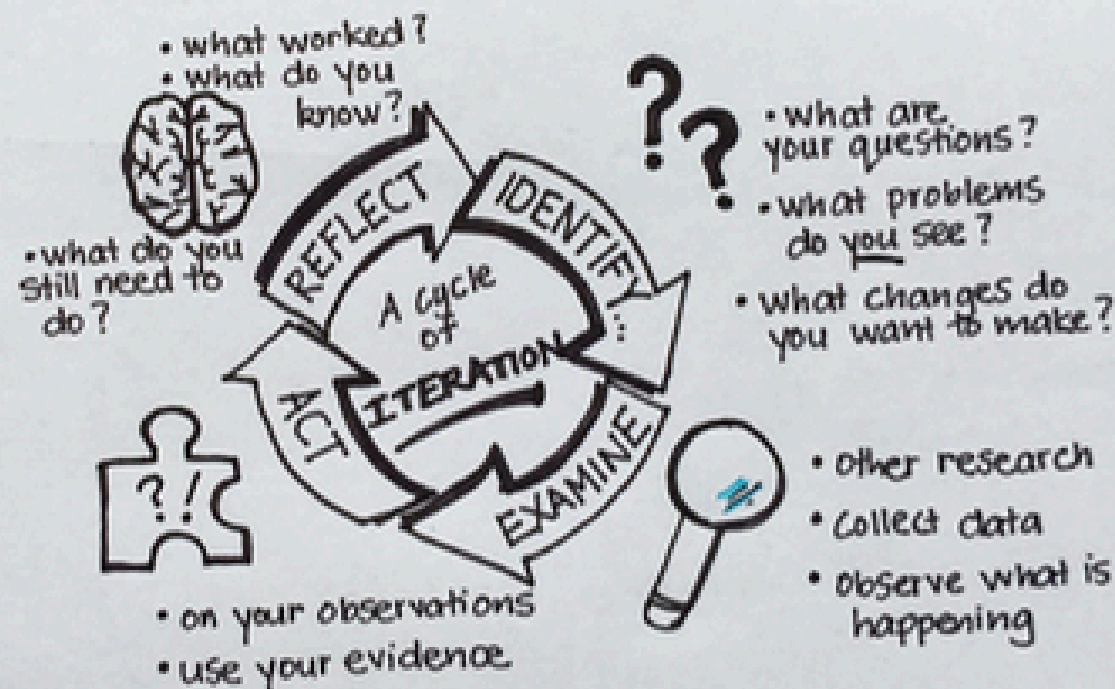 • what worked?
• what do you
know?
• what do you
still need to
do?
REFLECT
IDENTIFY...
EXAMINE
ACT
A cycle
of
ITERATION
? ?
• what are
your questions?
• what problems
do you see?
• what changes do
you want to make?
• other research
• collect data
• observe what is
happening
?!
• on your observations
• use your evidence